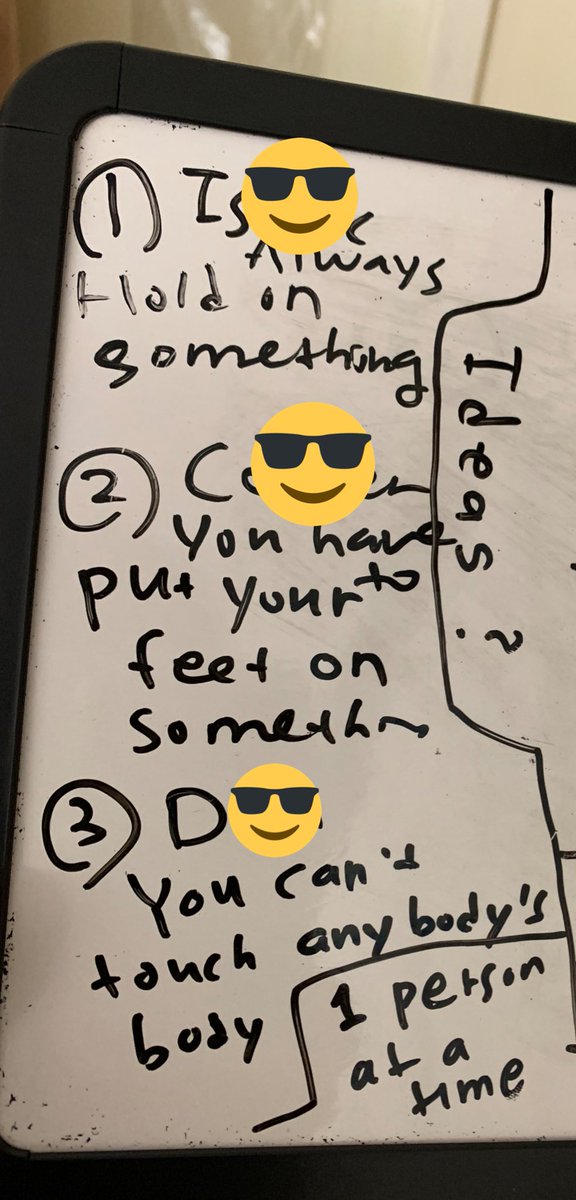 ①
Always
Hold on
something
②
You have
put your to
feet on
③
You can't
touch anybody's
body
Ideas?
1 person
at a
time